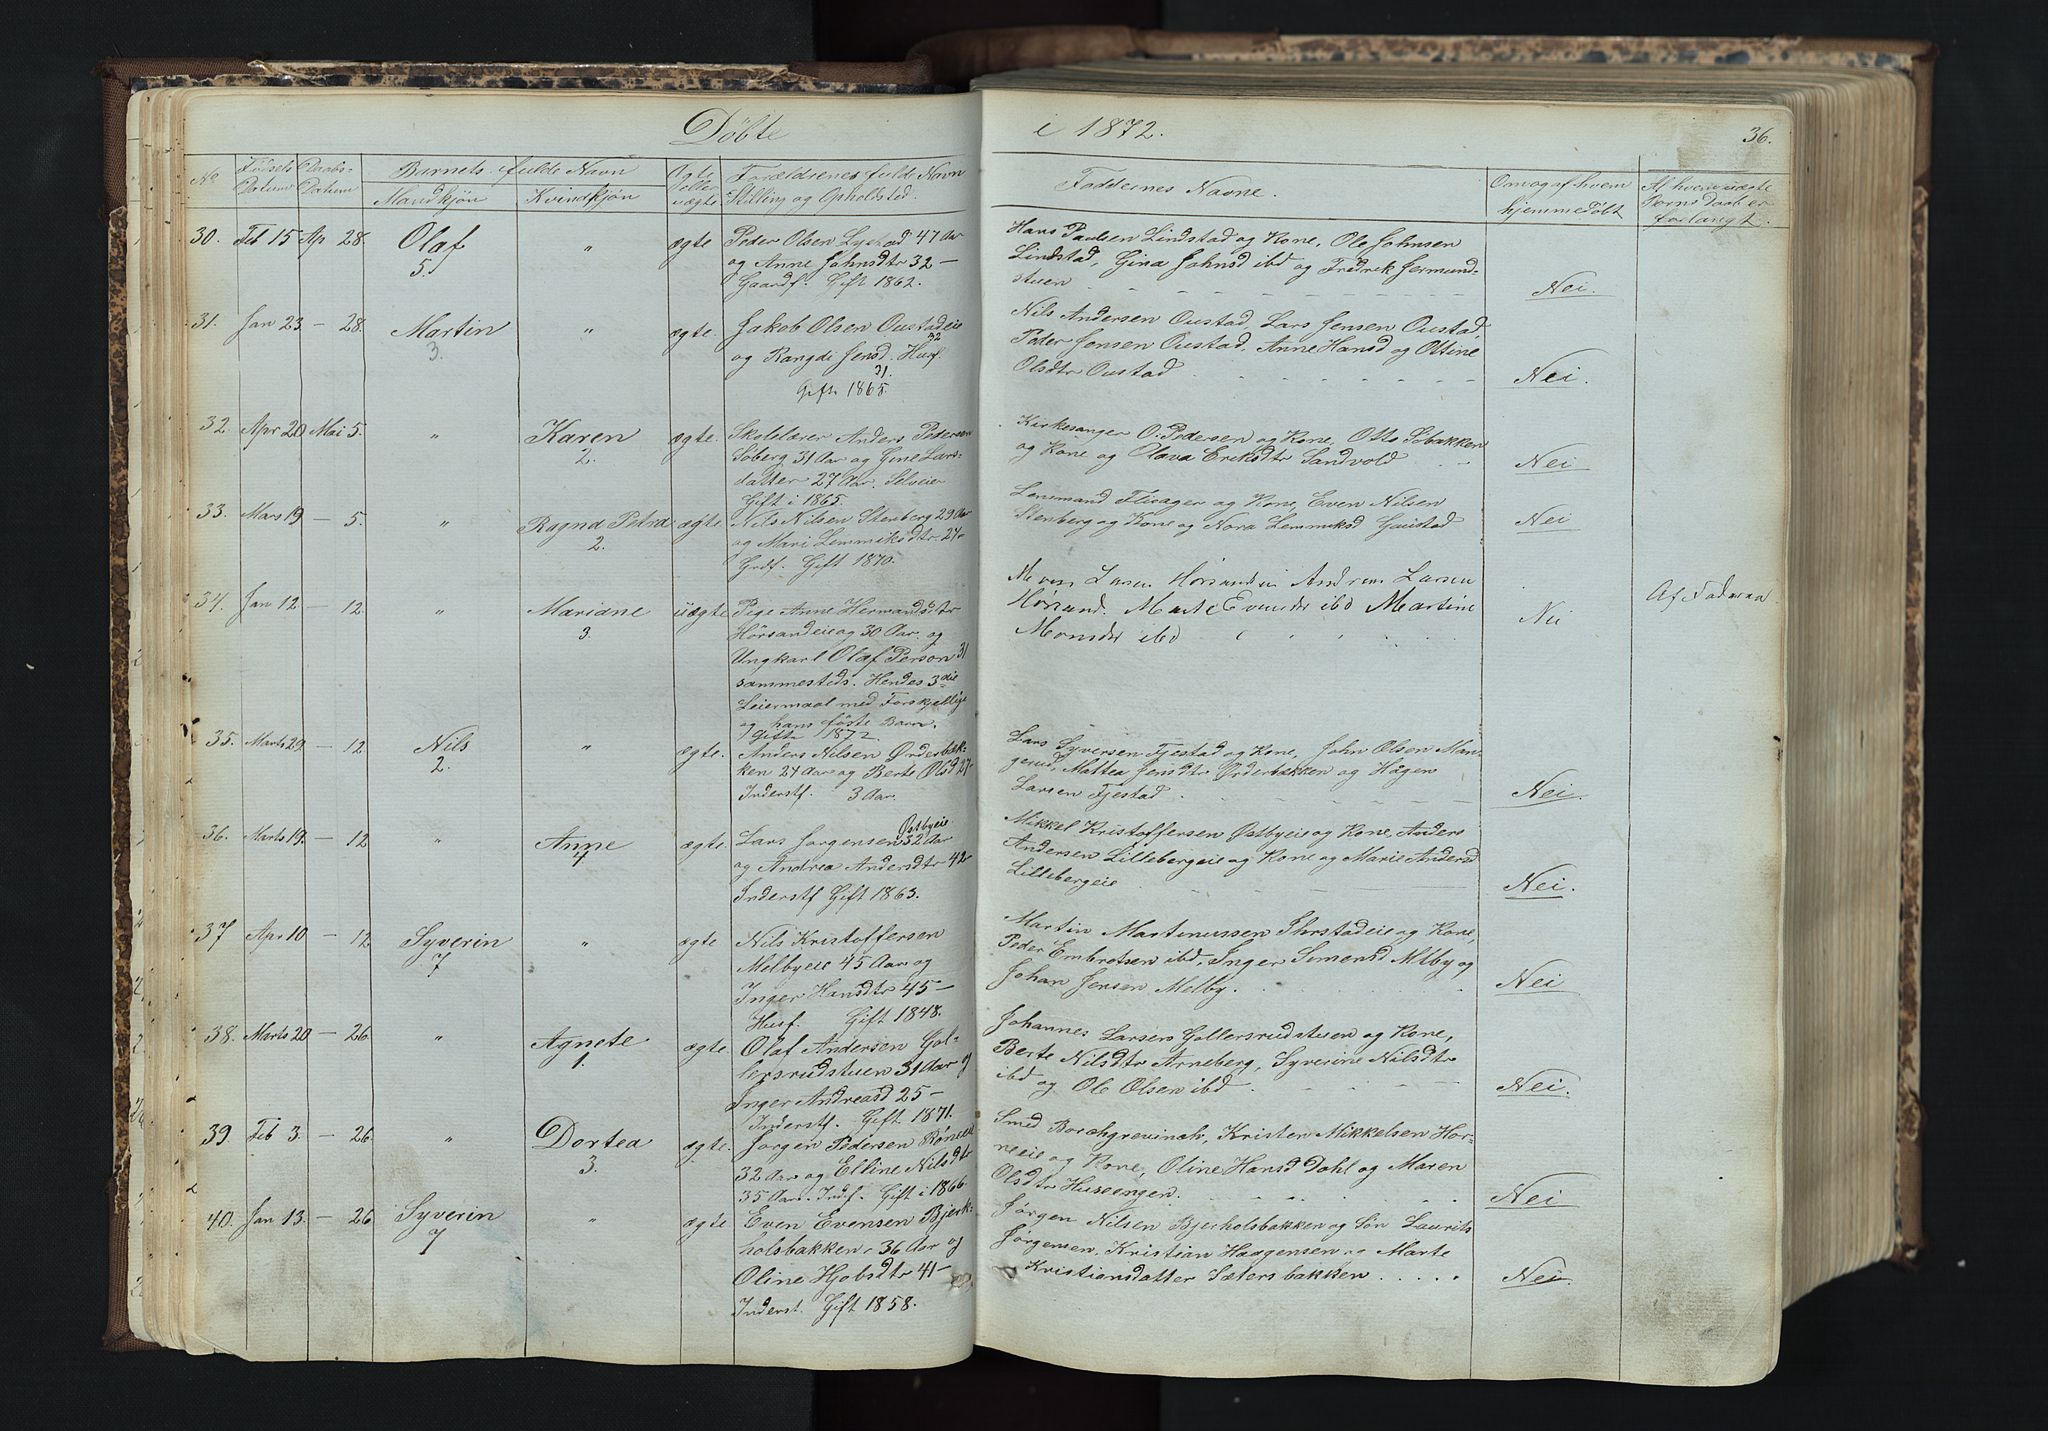 Døbte i 1872. 36.
No Fødsels Datum Daabs- Datum Barnets fulde Navn Mandkjøn Kvindkjøn Ægte eller uægte Forældrenes fulde Navn Stilling og Opholdsted. Faddernes Navne. Om og af hvem hjemmedøbt Af hvem uægte Børns Daab er forlangt.
30. Feb 15 Ap 28. Olaf 5. " ægte Peder Olsen Lystad 47 Aar
og Anne Johnsdtr 32 –
Gaardf. Gift 1862.
Hans Paulsen Lindstad og Kone, Ole Johnsen
Lindstad, Gina Johnsd ibd og Fredrik Jermund-
stuen Nei.
31. Jan 23 – 28. Martin 3. " ægte. Jakob Olsen Oustadeie
32
og Rangdi Jensd. Husf.
31.
Gift 1865.
Nils Andersen Oustad, Lars Jensen Oustad,
Peder Jonsen Oustad. Anne Hansd og Ottine
Olsdtr Oustad Nei.
32. Apr 20 Mai 5. " Karen 2. ægte. Skolelærer Anders Pedersen
Søberg 31 Aar og Gine Lars-
datter 27 Aar. Selveier
Gift i 1865.
Kirkesanger O. Pedersen og Kone, Otto Sobakken
og Kone og Olava Eriksdtr Sandvold Nei
33. Mars 19 – 5. " Ragna Petra 2. ægte. Nils Nilsen Stenberg 29 Aar
og Mari Lemmiksdtr 27 –
Grdf. Gift 1870.
Lensmand Flicager og Kone, Even Nilsen
Stenberg og Kone og Nora Lemmiksd Gaustad Nei
34. Jan 12 – 12. " Mariane 3. uægte Pige Anne Hermandsdtr
Hørsandeie og 30 Aar og
Ungkarl Olaf Person 31
sammesteds. Hendes 3die
Leiermaal med Forskjellige
og hans første Barn.
Gifte 1872.
Larsen Andreas Larsen
Hørsand. Marte Evensdr ibd Martine
Monsdr ibd Nei Af Faderen
35. Marts 29 – 12 Nils 2. " ægte. Anders Nilsen Ørderbak-
ken 27 Aar og Berte Olsd 27 –
Inderstf. 3 Aar.
Lars Syversen Fjestad og Kone, John Olsen Man-
gerud, Mattea Jensdtr Ørderbakken og Hågen
Larsen Fjestad Nei.
36. Marts 19. – 12 " Anne 4 ægte. Lars Jørgensen Østbyeie 32 Aar
og Andrea Andersdtr 42 –
Inderstf Gift 1863.
Mikkel Kristoffersen Østbyeie og Kone, Anders
Andersen Lillebergeie og Kone og Marie Andersd
Lillebergeie Nei.
37 Apr 10 – 12 Syverin 7 " ægte Nils Kristoffersen
Melbyeie 45 Aar og
Inger Hansdtr 45 –
Husf. Gift 1848.
Martin Martinussen Thrstadeie og Kone,
Peder Embretsen ibd, Inger Simensd Mlby og
Johan Jensen Melby. Nei
38. Marts 20 – 26. " Agnete 1. ægte. Olaf Andersen Gol-
lersrudstuen 31 Aar og
Inger Andreasd 25 –
Inderstf. Gift 1871.
Johannes Larsen Gollersrudstuen og Kone,
Berte Nilsdtr Arneberg, Syverine Nilsdtr
ibd og Ole Olsen ibd. Nei.
39. Feb 3. – 26. " Dortea 3. ægte. Jørgen Pedersen
32 Aar og Elline Nilsdtr
35 Aar. Indf. Gift i 1866
Smed Borchgrevinch, Kristen Mikkelsen Hor-
neeie og Kone, Oline Hansd Dahl og Maren
Olsdtr Huseengen. Nei
40. Jan 13. – 26 Syverin 7 " ægte Even Evensen Bjerk-
holsbakken 36 Aar og
Oline Hjobsdtr 41 –
Inderst. Gift 1858.
Jørgen Nilsen Bjerholsbakken og Søn Laurits
Jørgensen, Kristian Haagensen og Marte
Kristiansdatter Sætersbakken Nei.